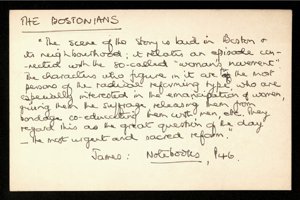 THE BOSTONIANS
"The scene of the story is laid in Boston &
its neighbourhood; it relates an episode con-
nected with the so-called "woman's movement"
The characters who figure in it are for the most
persons of the radical reforming type, who are
especially interested in the emancipation of women,
giving them the suffrage, releasing them from
bondage, co-educating them with men, etc. They
regard this as the great question of the day
– the most urgent and sacred reform."
James: Notebooks, P46